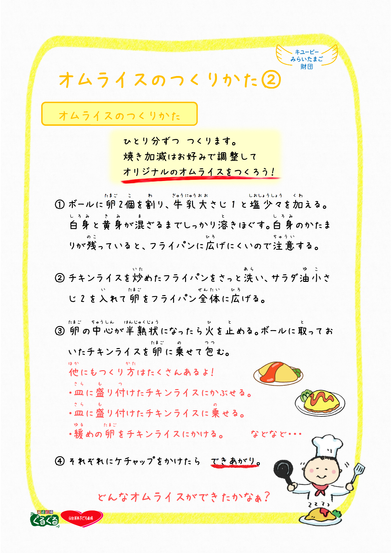 キユーピー
みらいたまご
財団
オムライスのつくりかた②
オムライスのつくりかた
ひとり分ずつ つくります。
焼き加減はお好みで調整して
オリジナルのオムライスをつくろう!
①ボールに卵2個を割り、牛乳大さじ1と塩少々を加える。
白身と黄身が混ざるまでしっかり溶きほぐす。白身のかたま
りが残っていると、フライパンに広げにくいので注意する。
②チキンライスを炒めたフライパンをさっと洗い、サラダ油小さ
じ2を入れて卵をフライパン全体に広げる。
③卵の中心が半熟状になったら火を止める。ボールに取ってお
いたチキンライスを卵に乗せて包む。
他にもつくり方はたくさんあるよ!
・皿に盛り付けたチキンライスにかぶせる。
・皿に盛り付けたチキンライスに乗せる。
・緩めの卵をチキンライスにかける。 などなど・・・
④それぞれにケチャップをかけたら できあがり。
どんなオムライスができたかなぁ?
くるくる